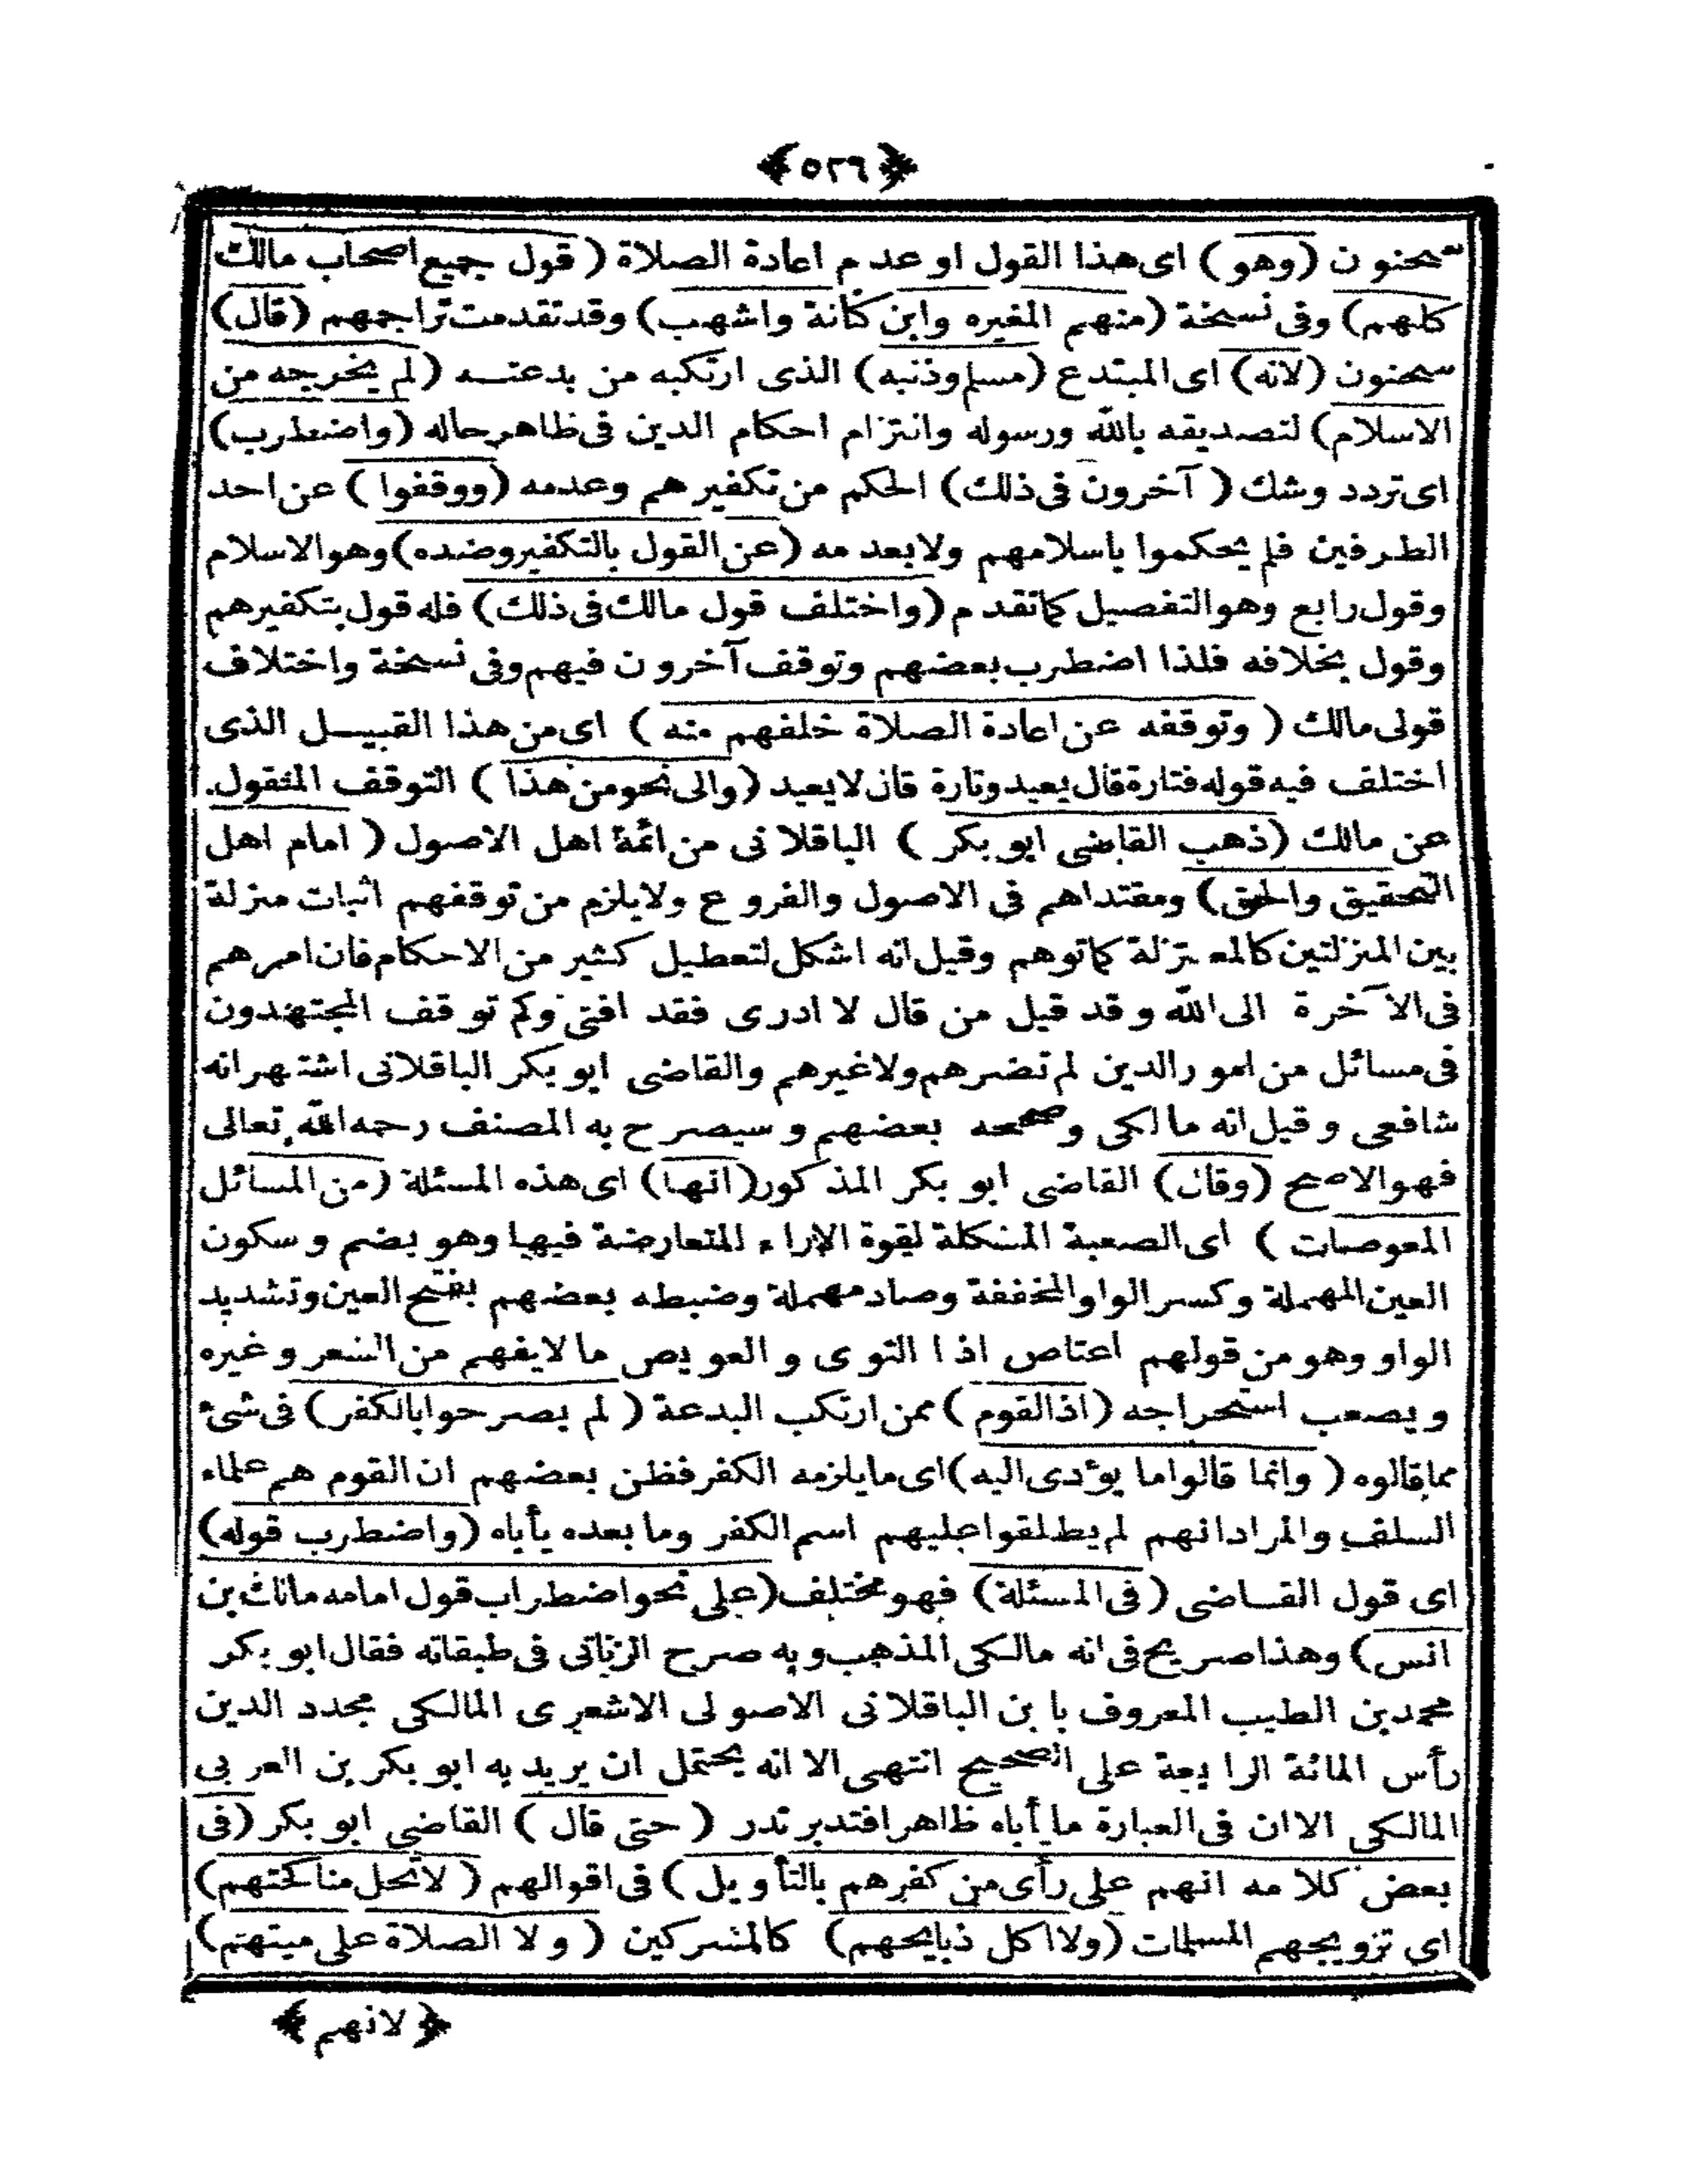 ﴿٥٢٦﴾
سحنون (وهو) اى هذا القول او عدم اعادة الصلاة (قول جميع اصحاب مالك
كلهم) وفى نسخة (منهم المغيره وابن كنانة واشهب) وقد تقدمت تراجمهم (قال)
سحنون (لانه) اى المبتدع (مسلم وذنبه) الذى ارتكبه من بدعته (لم يخرجه من
الاسلام) لتصديقه بالله ورسوله والتزام احكام الدين فى ظاهر حاله (واضطرب)
اى تردد وشك (آخرون فى ذلك) الحكم من تكفيرهم وعدمه (ووقفوا) عن احد
الطرفين فلم يحكموا باسلامهم ولا بعدمه (عن القول بالتكفير وضده) وهو الاسلام
وقول رابع وهو التفصيل كما تقدم (واختلف قول مالك فى ذلك) فله قول بتكفيرهم
وقول بخلافه فلذا اضطرب بعضهم وتوقف آخرون فيهم وفى نسخة واختلاف
قولى مالك (وتوقفه عن اعادة الصلاة خلفهم منه) اى من هذا القبيل الذى
اختلف فيه قوله فتارة قال يعيد وتارة قال لا يعيد (والى نحو من هذا) التوقف المنقول
عن مالك (ذهب القاضى ابو بكر) الباقلانى من ائمة اهل الاصول (امام اهل
التحقيق والحق) ومقتداهم فى الاصول والفروع ولا يلزم من توقفهم اثبات منزلة
بين المنزلتين كالمعتزلة كما توهم وقيل انه اشكل لتعطيل كثير من الاحكام فان امرهم
فى الآخرة الى الله وقد قيل من قال لا ادرى فقد افتى وكم توقف المجتهدون
فى مسائل من امور الدين لم تضرهم ولا غيرهم والقاضى ابو بكر الباقلانى اشتهر انه
شافعى وقيل انه مالكى وصححه بعضهم وسيصرح به المصنف رحمه الله تعالى
فهو الاصح (وقال) القاضى ابو بكر المذكور (انها) اى هذه المسئلة (من المسائل
المعوصات) اى الصعبة المشكلة لقوة الاراء المتعارضة فيها وهو بضم وسكون
العين المهملة وكسر الواو المخففة وصاد مهملة وضبطه بعضهم بفتح العين وتشديد
الواو وهو من قولهم اعتاص اذا التوى والعويص ما لا يفهم من الشعر وغيره
ويصعب استخراجه (اذ القوم) ممن ارتكب البدعة (لم يصرحوا بالكفر) فى شئ
مما قالوه (وانما قالوا ما يؤدى اليه) اى ما يلزمه الكفر فظن بعضهم ان القوم هم علماء
السلف والمراد انهم لم يطلقوا عليهم اسم الكفر وما بعده يأباه (واضطرب قوله)
اى قول القاضى (فى المسئلة) فهو مختلف (على نحو اضطراب قول امامه مالك بن
انس) وهذا صريح فى انه مالكى المذهب وبه صرح الزناتى فى طبقاته فقال ابو بكر
محمد بن الطيب المعروف با بن الباقلانى الاصولى الاشعرى المالكى مجدد الدين
رأس المائة الرابعة على الصحيح انتهى الا انه يحتمل ان يريد به ابو بكر بن العربى
المالكى الا ان فى العبارة ما يأباه ظاهرا فتدبر تدر (حتى قال) القاضى ابو بكر (فى
بعض كلامه انهم على رأى من كفرهم بالتأويل) فى اقوالهم (لا تحل مناكحتهم)
اى تزويجهم المسلمات (ولا اكل ذبايحهم) كالمشركين (ولا الصلاة على ميتهم)
﴿لانهم﴾